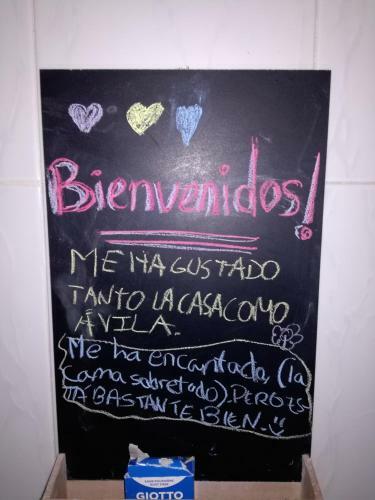 Bienvenidos!
ME HA GUSTADO
TANTO LA CASA COMO
ÁVILA.
Me ha encantada, (la
cama sobretodo). PERO ES
TÁ BASTANTE BIEN. :)
GIOTTO